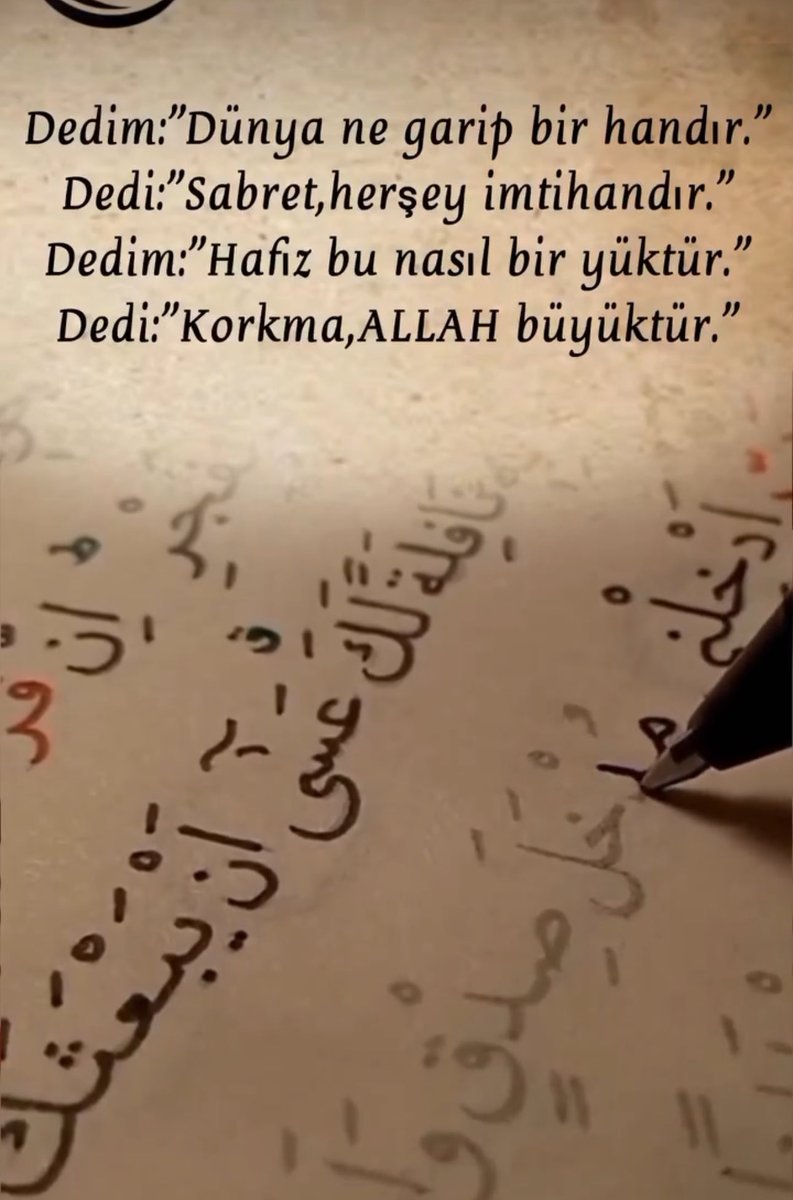 Dedim:"Dünya ne garip bir handır."
Dedi:"Sabret,herşey imtihandır."
Dedim:"Hafız bu nasıl bir yüktür."
Dedi:"Korkma,ALLAH büyüktür."
نَافِلَةً لَّكَ عَسٰٓى اَنْ يَبْعَثَكَ
اَدْخِلْنٖي مُدْخَلَ صِدْقٍ وَاَ